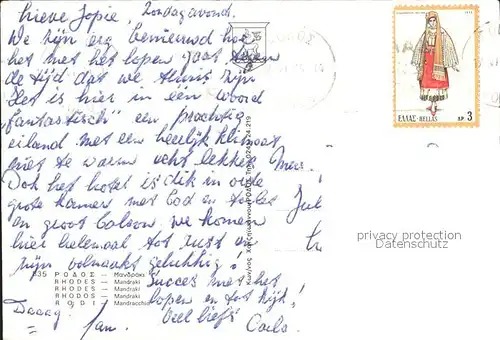 Lieve Jopie, Zondagavond.
We zijn erg benieuwd hoe
het met het lopen gaat tegen
de tijd dat we thuis zijn
Het is hier in één woord
"fantastisch" een prachtig
eiland met een heerlijk klimaat
niet te warm echt lekker
Ook het hotel is dik in orde
grote kamer met bad en toilet
en groot balcon we komen
hier helemaal tot rust en
zijn volmaakt gelukkig!
Succes met het
lopen en tot kijk!
Daaag. Jan. Veel liefs
Carla.
Mev.
Jul
ΕΛΛΑΣ-HELLAS ΔΡ 3
535 ΡΟΔΟΣ — Μανδράκι
RHODES — Mandraki
RHODES — Mandraki
RHODOS — Mandraki
RODI — Mandracchio
privacy protection
Datenschutz